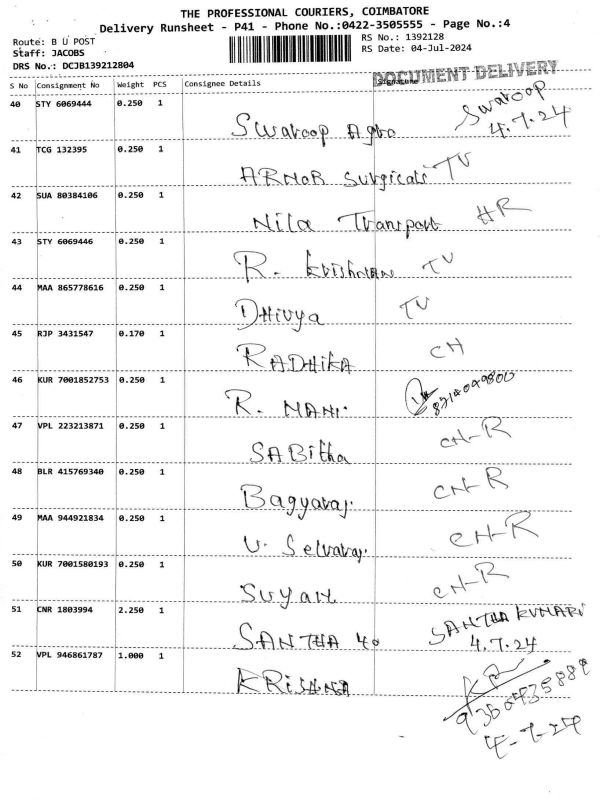 THE PROFESSIONAL COURIERS, COIMBATORE
Delivery Runsheet - P41 - Phone No.:0422-3505555 - Page No.:4
Route: B U POST
RS No.: 1392128
Staff: JACOBS
RS Date: 04-Jul-2024
DRS No.: DCJB139212804
DOCUMENT DELIVERY
S No Consignment No Weight PCS Consignee Details Signature
40 STY 6069444 0.250 1 Swaroop Agro Swaroop
4.7.24
41 TCG 132395 0.250 1 ARNOR Surgicals TV
42 SUA 80384106 0.250 1 Nila Transport HR
43 STY 6069446 0.250 1 R. Krishnan TV
44 MAA 865778616 0.250 1 DHivya TV
45 RJP 3431547 0.170 1 RADHIKA CH
46 KUR 7001852753 0.250 1 R. MANI.
47 VPL 223213871 0.250 1 SABitha CH-R
48 BLR 415769340 0.250 1 Bagyaraj. CH-R
49 MAA 944921834 0.250 1 V. Selvaraj. CH-R
50 KUR 7001580193 0.250 1 CH-R
51 CNR 1803994 2.250 1 SANTHA SANTHA KUMARI
4.7.24
52 VPL 946861787 1.000 1 KRISHNA
4-7-24